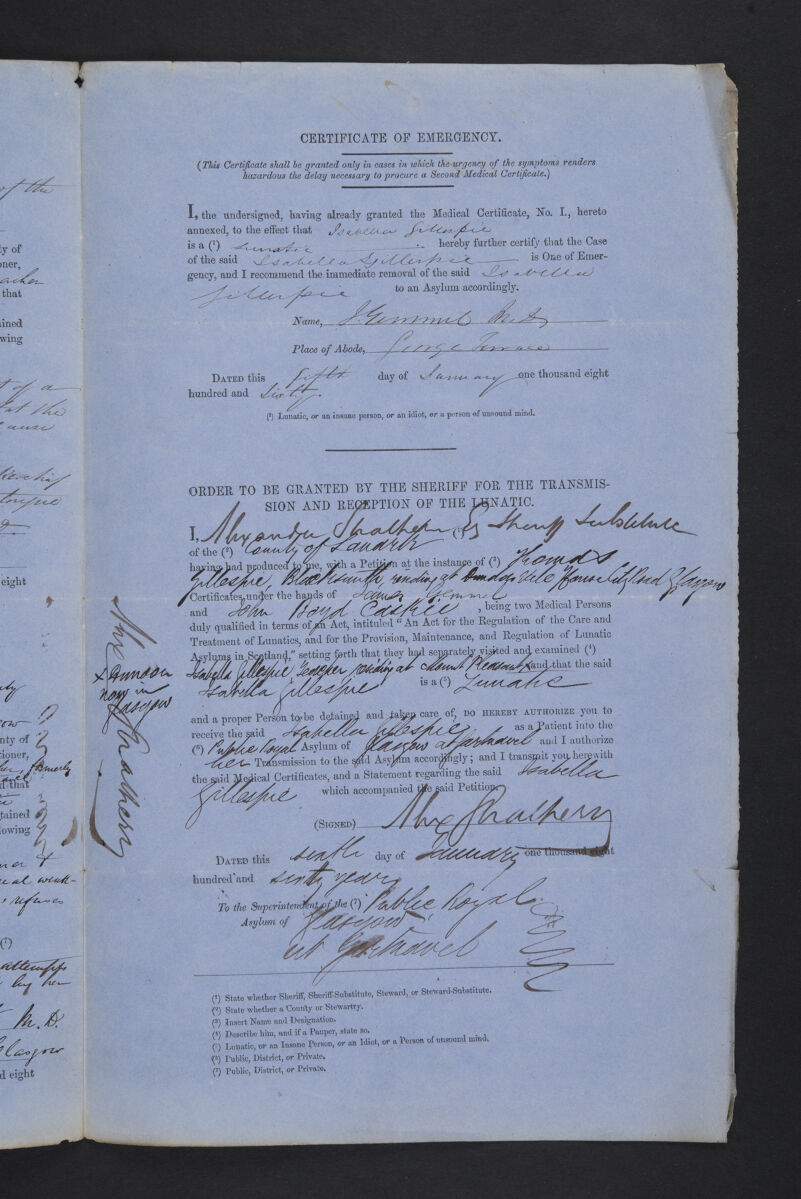 CERTIFICATE OF EMERGENCY.
(This Certificate shall be granted only in cases in which the urgency of the symptoms renders
hazardous the delay necessary to procure a Second Medical Certificate.)
I, the undersigned, having already granted the Medical Certificate, No. I., hereto
annexed, to the effect that Isabella Gillespie
is a (¹) Lunatic hereby further certify that the Case
of the said Isabella Gillespie is One of Emer-
gency, and I recommend the immediate removal of the said Isabella
Gillespie to an Asylum accordingly.
Name, J. Gemmel M.D.
Place of Abode, George Terrace
DATED this fifth day of January one thousand eight
hundred and Sixty.
(¹) Lunatic, or an insane person, or an idiot, or a person of unsound mind.
ORDER TO BE GRANTED BY THE SHERIFF FOR THE TRANSMIS-
SION AND RECEPTION OF THE LUNATIC.
I, Alexander Strathern (¹) Esq Sheriff Substitute
of the (²) County of Lanark
having had produced to me, with a Petition at the instance of (³) Thomas
Gillespie, Blacksmith, residing at House City Road Glasgow
Certificates under the hands of James Gemmel
and John Boyd Caskie, being two Medical Persons
duly qualified in terms of an Act, intituled "An Act for the Regulation of the Care and
Treatment of Lunatics, and for the Provision, Maintenance, and Regulation of Lunatic
Asylums in Scotland," setting forth that they had separately visited and examined (⁴)
Isabella Gillespie, Teacher, residing at Mount Pleasant x and that the said
x Dunoon
now in
Glasgow
Alex Strathern
Isabella Gillespie is a (⁵) Lunatic
and a proper Person to be detained and taken care of, DO HEREBY AUTHORIZE you to
receive the said Isabella Gillespie as a Patient into the
(⁶) Public Royal Asylum of Glasgow at Gartnavel and I authorize
her Transmission to the said Asylum accordingly; and I transmit you herewith
the said Medical Certificates, and a Statement regarding the said Isabella
Gillespie which accompanied the said Petition.
(SIGNED) Alex Strathern
DATED this sixth day of January one thousand eight
hundred and sixty years
To the Superintendent of the (⁷) Public Royal
Asylum of Glasgow
at Gartnavel
(¹) State whether Sheriff, Sheriff-Substitute, Steward, or Steward-Substitute.
(²) State whether a County or Stewartry.
(³) Insert Name and Designation.
(⁴) Describe him, and if a Pauper, state so.
(⁵) Lunatic, or an Insane Person, or an Idiot, or a Person of unsound mind.
(⁶) Public, District, or Private.
(⁷) Public, District, or Private.
of the
ty of
oner,
that
ined
wing
at the
eight
nty of
tioner,
formerly
d that
tained
lowing
weak-
refuses
(¹)
attempts
by her
M.D.
Glasgow
d eight